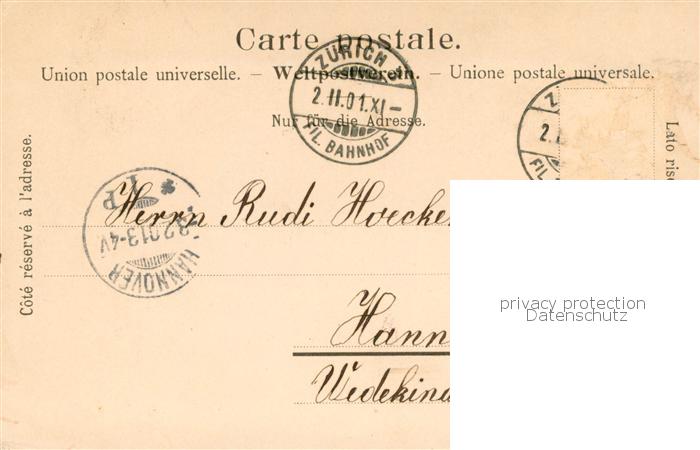 Carte postale.
Union postale universelle. — Weltpostverein. — Unione postale universale.
Nur für die Adresse.
Côté réservé à l'adresse.
Lato rise
ZÜRICH
2.II.01.XI–
FIL. BAHNHOF
Z
2.
FIL
HANNOVER
3.2.01.3-4V.
1.P
Herrn Rudi Hoecke
Hann
Wedekind
privacy protection
Datenschutz